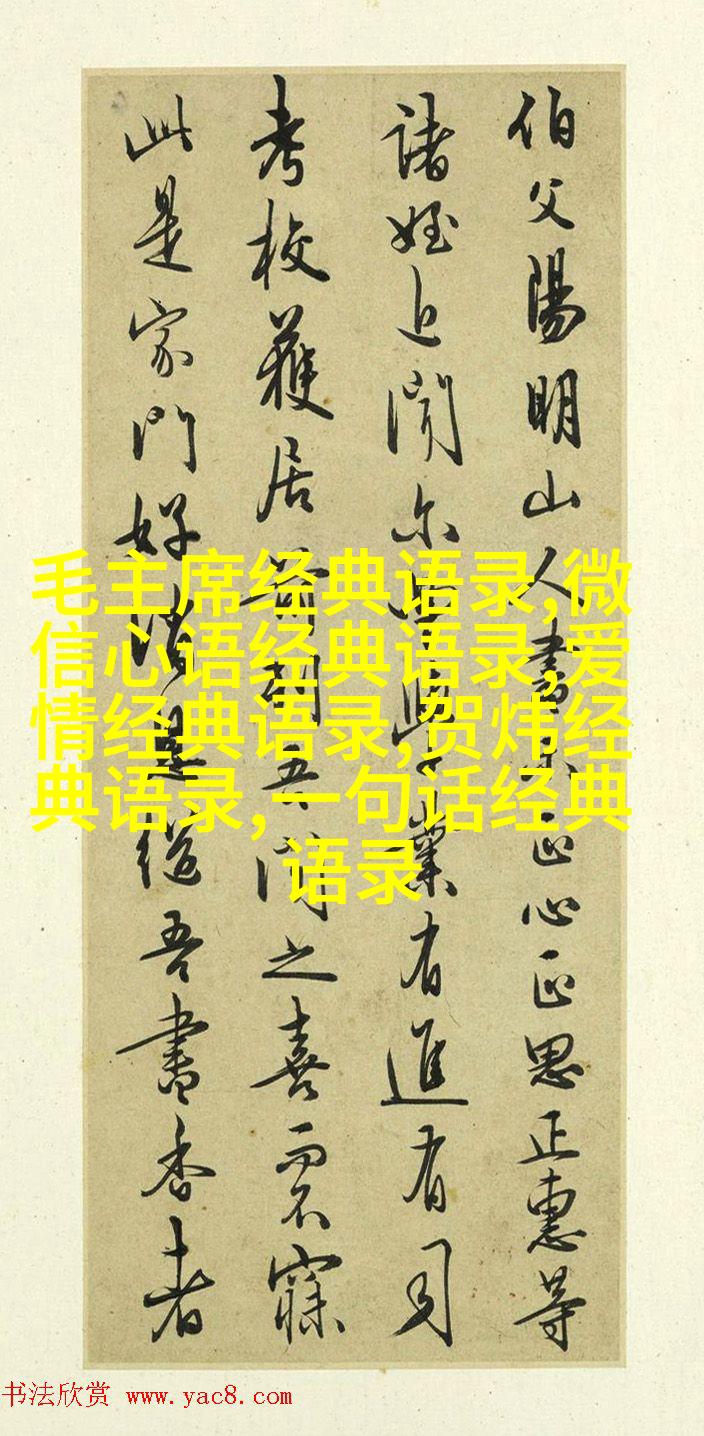 伯父陽明山人書示正心正思正惠等
諸姪近聞尔業有進有司
考校獲居前列吾聞之喜而不寐
此是家門好消息繼吾書香者
毛主席经典语录,微
信心语经典语录,爱
情经典语录,贺炜经
典语录,一句话经典
语录
书法欣赏 www.yac8.com